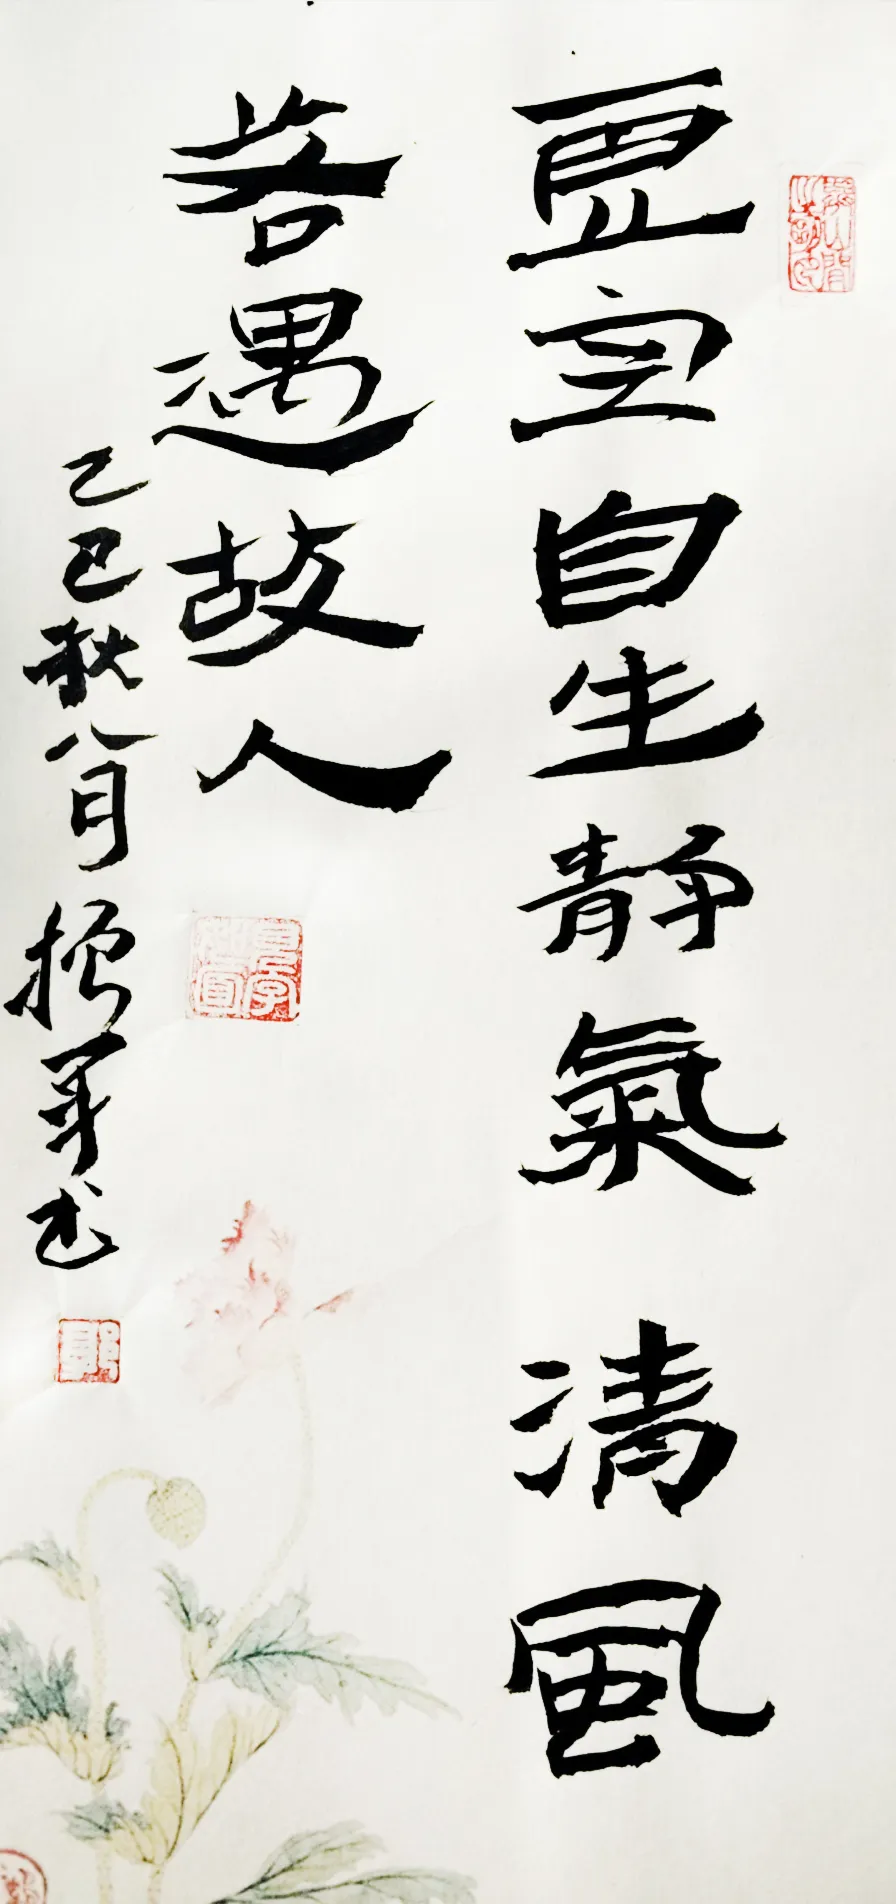 虚室自生静氣 清風
若遇故人
乙巳秋八月 书